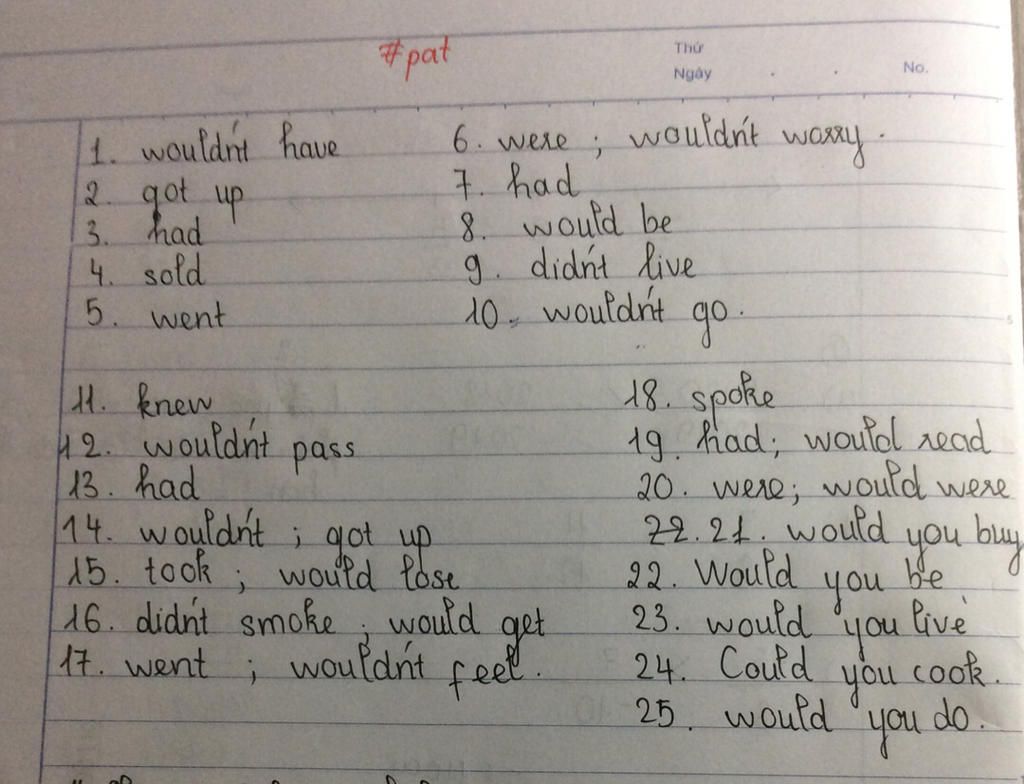 #pat
Thứ
Ngày . . No.
1. wouldn't have
2. got up
3. had
4. sold
5. went
6. were ; wouldn't worry.
7. had
8. would be
9. didn't live
10. wouldn't go.
11. knew
12. wouldn't pass
13. had
14. wouldn't ; got up
15. took ; would lose
16. didn't smoke ; would get
17. went ; wouldn't feel.
18. spoke
19. had; would read
20. were; would were
22. 21. would you buy
22. Would you be
23. would you live
24. Could you cook.
25. would you do.